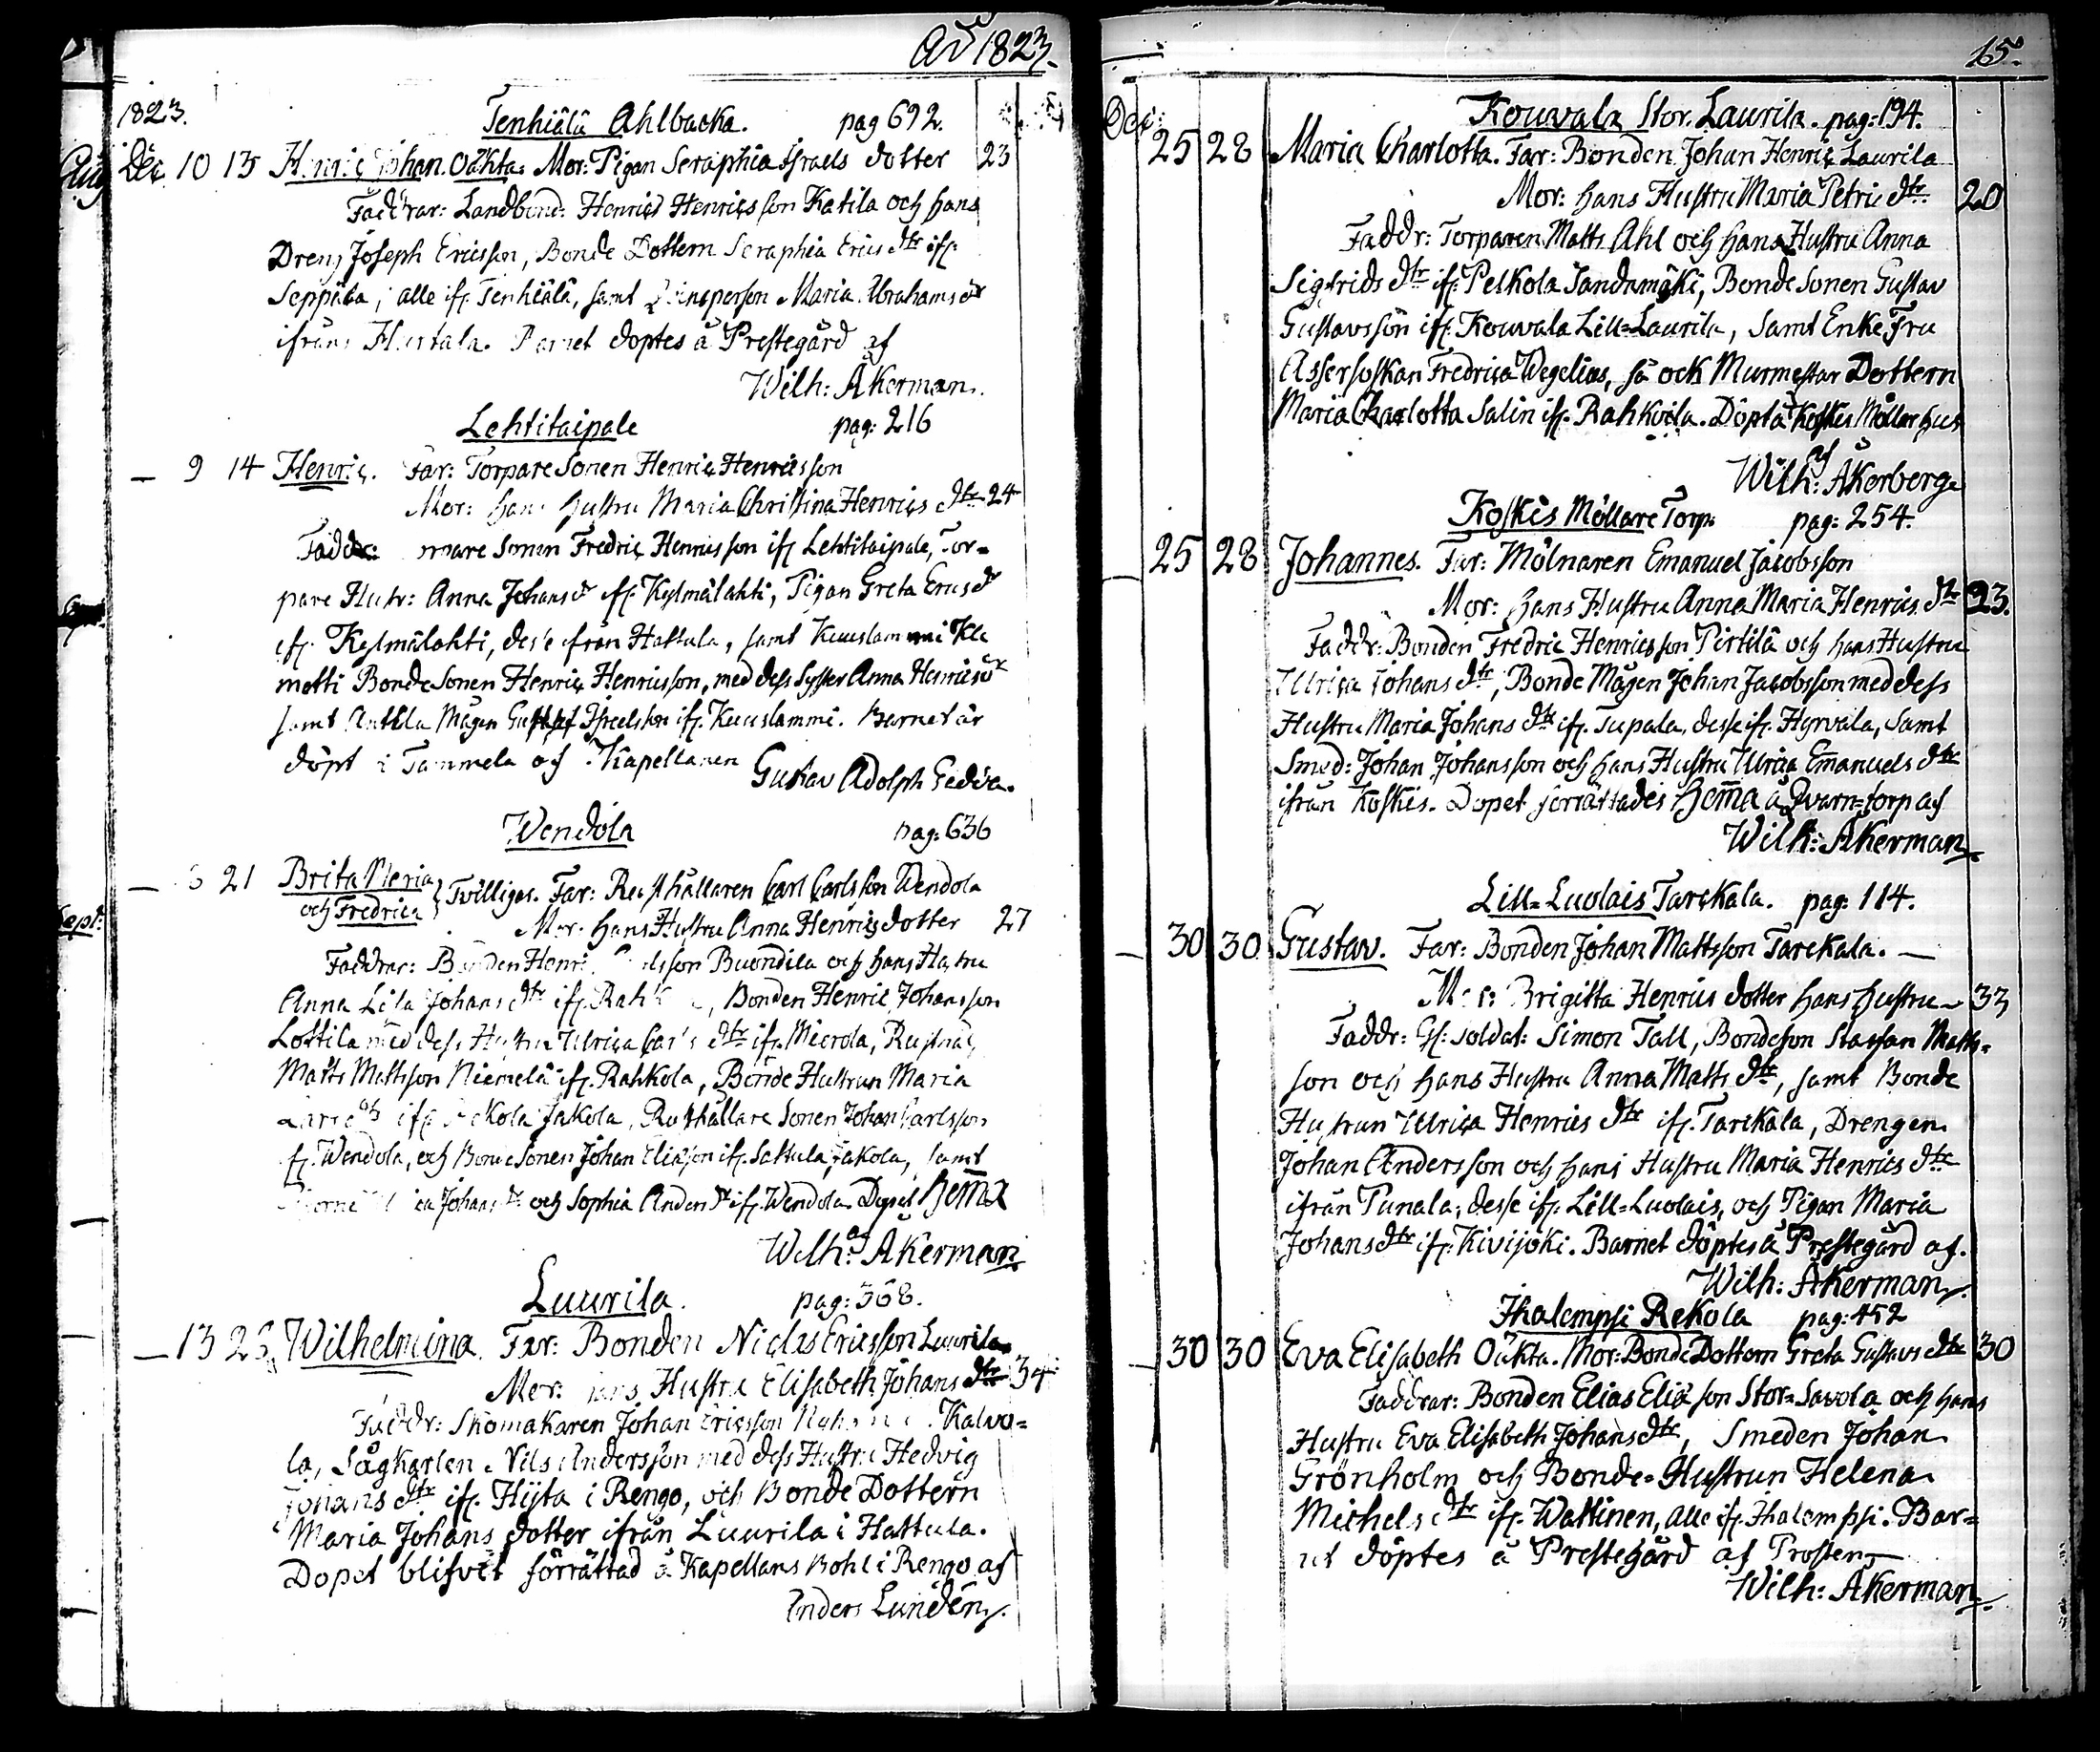 Ao 1823.
1823. Tenhiälä Ahlbacka. pag 692.
Dec 10 13 Henric Johan. Oäkta. Mor: Pigan Seraphia Israels dotter 23
Faddrar: Landbond: Henric Henricsson Katila och hans
Dreng Joseph Ericsson, Bonde Dottern Seraphia Erics dtr ifr.
Seppälä, alle ifr. Tenhiälä, samt Qvinsperson Maria Abrahams dr
ifrån Hurtala. Barnet döptes å Prestegård af
Wilh: Åkerman.
Lehtitaipale pag: 216
— 9 14 Henric. Far: Torpare Sonen Henric Henricsson
Mor: hans hustru Maria Christina Henrics dtr 24
Faddr: Sonen Fredric Henricsson ifr Lehtitaipale, Tor=
pare Hustr: Anna Johans dr ifr. Kylmälahti, Pigan Greta Erics dr
ifr. Kylmälahti, desse ifrån Hattula, samt Kuuslammi Kle
motti Bonde Sonen Henric Henricsson, med dess Syster Anna Henrics dr
samt Anttila Mågen Gustaf Israelsson ifr. Kuuslammi. Barnet är
döpt i Tammela af Kapellanen Gustav Adolph Gedda.
Wendola pag: 636
— 21 Brita Maria
och Fredrica } Tvillingar. Far: Rusthållaren Carl Carlsson Wendola
Mor: hans Hustru Anna Henrics dotter 27
Faddrar: Bonden Henric Buondila och hans Hustru
Anna Lisa Johans dtr ifr. Bonden Henric Johansson
Lottila med dess Hustru Ulrica Carls dtr ifr. Mierola, Rusthål.
Matts Mattsson Niemelä ifr. Rahkola, Bonde Hustrun Maria
ifr. Jakola, Rusthållare Sonen Johan Carlsson
ifr. Wendola, och Bonde Sonen Johan Eliasson ifr. Sattula Jakola, samt
Johans dr och Sophia Anders dr ifr. Wendola. Döpt hemma
af
Wilh: Åkerman
Luurila. pag: 368.
— 13 23 Wilhelmina. Far: Bonden Niclas Ericsson Luurila
Mor: hans Hustru Elisabeth Johans dtr 34
Faddr: Skomakaren Johan Ericsson Kalvo=
la, Sågkarlen Nils Andersson med dess Hustru Hedvig
Johans dtr ifr. Hijta i Rengo, och Bonde Dottern
Maria Johans dotter ifrån Luurila i Hattula.
Dopet blifvit förrättad å Kapellans Bohl i Rengo af
Anders Lundén.
15.
Dec: Kouvala Stor Laurila. pag: 194.
25 28 Maria Charlotta. Far: Bonden Johan Henric Laurila
Mor: hans Hustru Maria Petri dtr. 20
Faddr: Torparen Matts Ahl och hans Hustru Anna
Sigfrids dtr ifr. Pelkola Sandamäki, Bonde Sonen Gustav
Gustavsson ifr. Kouvala Lill=Laurila, samt Enke Fru
Assersoskan Fredrica Wegelius, så ock Murmestar Dottern
Maria Charlotta Salin ifr. Rahkoila. Döpt å Koskis Möllar hus
af
Wilh: Åkerberg
Koskis Möllare Torp. pag: 254.
— 25 28 Johannes. Far: Mölnaren Emanuel Jacobsson
Mor: hans Hustru Anna Maria Henrics dtr 23.
Faddr: Bonden Fredric Henricsson Pirtilä och hans Hustru
Ulrica Johans dtr, Bonde Mågen Johan Jacobsson med dess
Hustru Maria Johans dtr ifr. Tupala, desse ifr. Hyrvälä, samt
Smed: Johan Johansson och hans Hustru Ulrica Emanuels dtr
ifrån Koskis. Dopet förrättades hema å Qvarn=torp af
Wilh: Åkerman
Lill=Luolais Tarckala. pag: 114.
— 30 30 Gustav. Far: Bonden Johan Mattsson Tarckala. —
Mor: Brigitta Henrics dotter hans hustru — 33
Faddr: Gf: soldat: Simon Tall, Bondeson Staffan Matts=
son och hans Hustru Anna Matts dtr, samt Bonde
Hustrun Ulrica Henrics dtr ifr. Tarckala, Drengen
Johan Andersson och hans Hustru Maria Henrics dtr
ifrån Punala, desse ifr. Lill=Luolais, och Pigan Maria
Johans dtr ifr. Kivijoki. Barnet döptes å Prestegård af.
Wilh: Åkerman.
Ihalempsi Rekola pag: 452
— 30 30 Eva Elisabeth Oäkta. Mor: Bonde Dottern Greta Gustavs dtr 30
Faddrar: Bonden Elias Eliasson Stor=Savola och hans
Hustru Eva Elisabeth Johans dtr, Smeden Johan
Grönholm och Bonde=Hustrun Helena
Michels dtr ifr. Wattinen, alle ifr. Ihalempsi. Bar=
net döptes å Prestegård af Prosten
Wilh: Åkerman